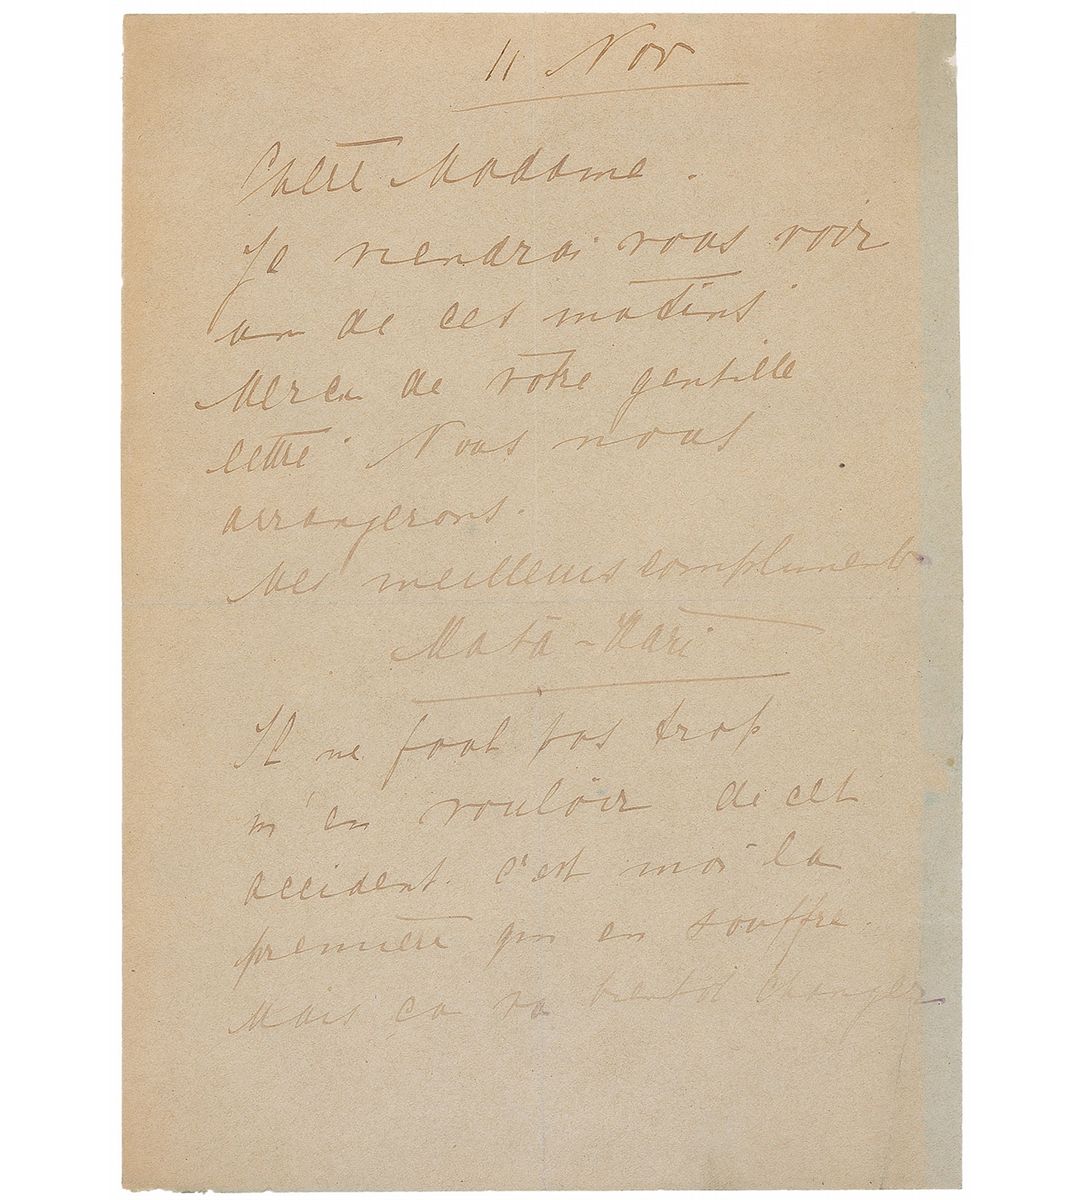 11 Nov
Chère Madame.
Je viendrai vous voir
un de ces matins
Merci de votre gentille
lettre. Nous nous
arrangerons.
Mes meilleurs compliments
Mata-Hari
Il ne faut pas trop
m'en vouloir de cet
accident. C'est moi la
première qui en souffre.
Mais ça va bientôt changer